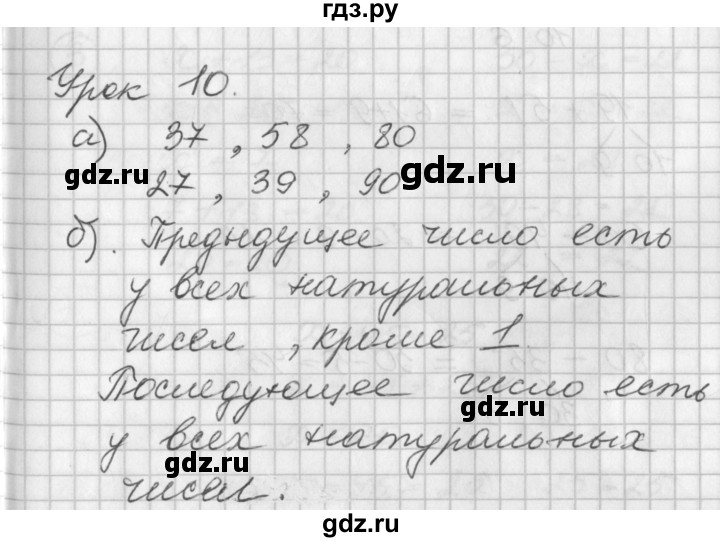 гдз.ру
Урок 10.
а) 37, 58, 80
gdz.ru
gdz.ru
27, 39, 90
б). Предыдущее число есть
у всех натуральных
чисел, кроме 1.
Последующее число есть
gdz.ru
у всех натуральных
gdz.ru
чисел.
gdz.ru